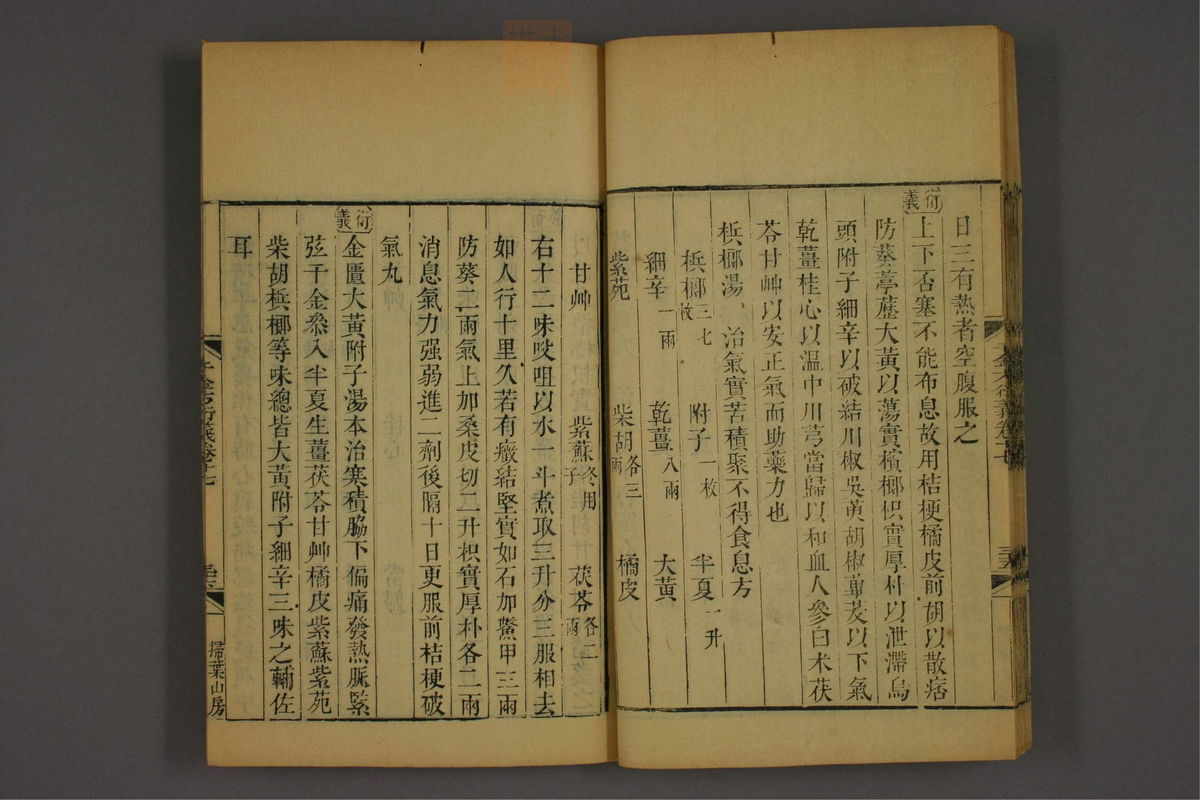 日三有熱者空腹服之
衍義
上下否塞不能布息故用桔梗橘皮前胡以散痞
防葵葶藶大黃以蕩實檳榔枳實厚朴以泄滯烏
頭附子細辛以破結川椒吳萸胡椒蓽茇以下氣
乾薑桂心以溫中川芎當歸以和血人參白朮茯
苓甘艸以安正氣而助藥力也
梹榔湯治氣實苦積聚不得食息方
梹榔三七枚 附子一枚 半夏一升
細辛一兩 乾薑八兩 大黃
紫菀 柴胡各三兩 橘皮
甘艸 紫蘇冬用子 茯苓各二兩
右十二味㕮咀以水一斗煮取三升分三服相去
如人行十里久若有癥結堅實如石加鱉甲三兩
防葵二兩氣上加桑皮切二升枳實厚朴各二兩
消息氣力强弱進二劑後隔十日更服前桔梗破
氣丸
衍義
金匱大黃附子湯本治寒積脇下偏痛發熱脈緊
弦千金叅入半夏生薑茯苓甘艸橘皮紫蘇紫菀
柴胡梹榔等味總皆大黃附子細辛三味之輔佐
耳
千金方衍義卷十七
掃葉山房